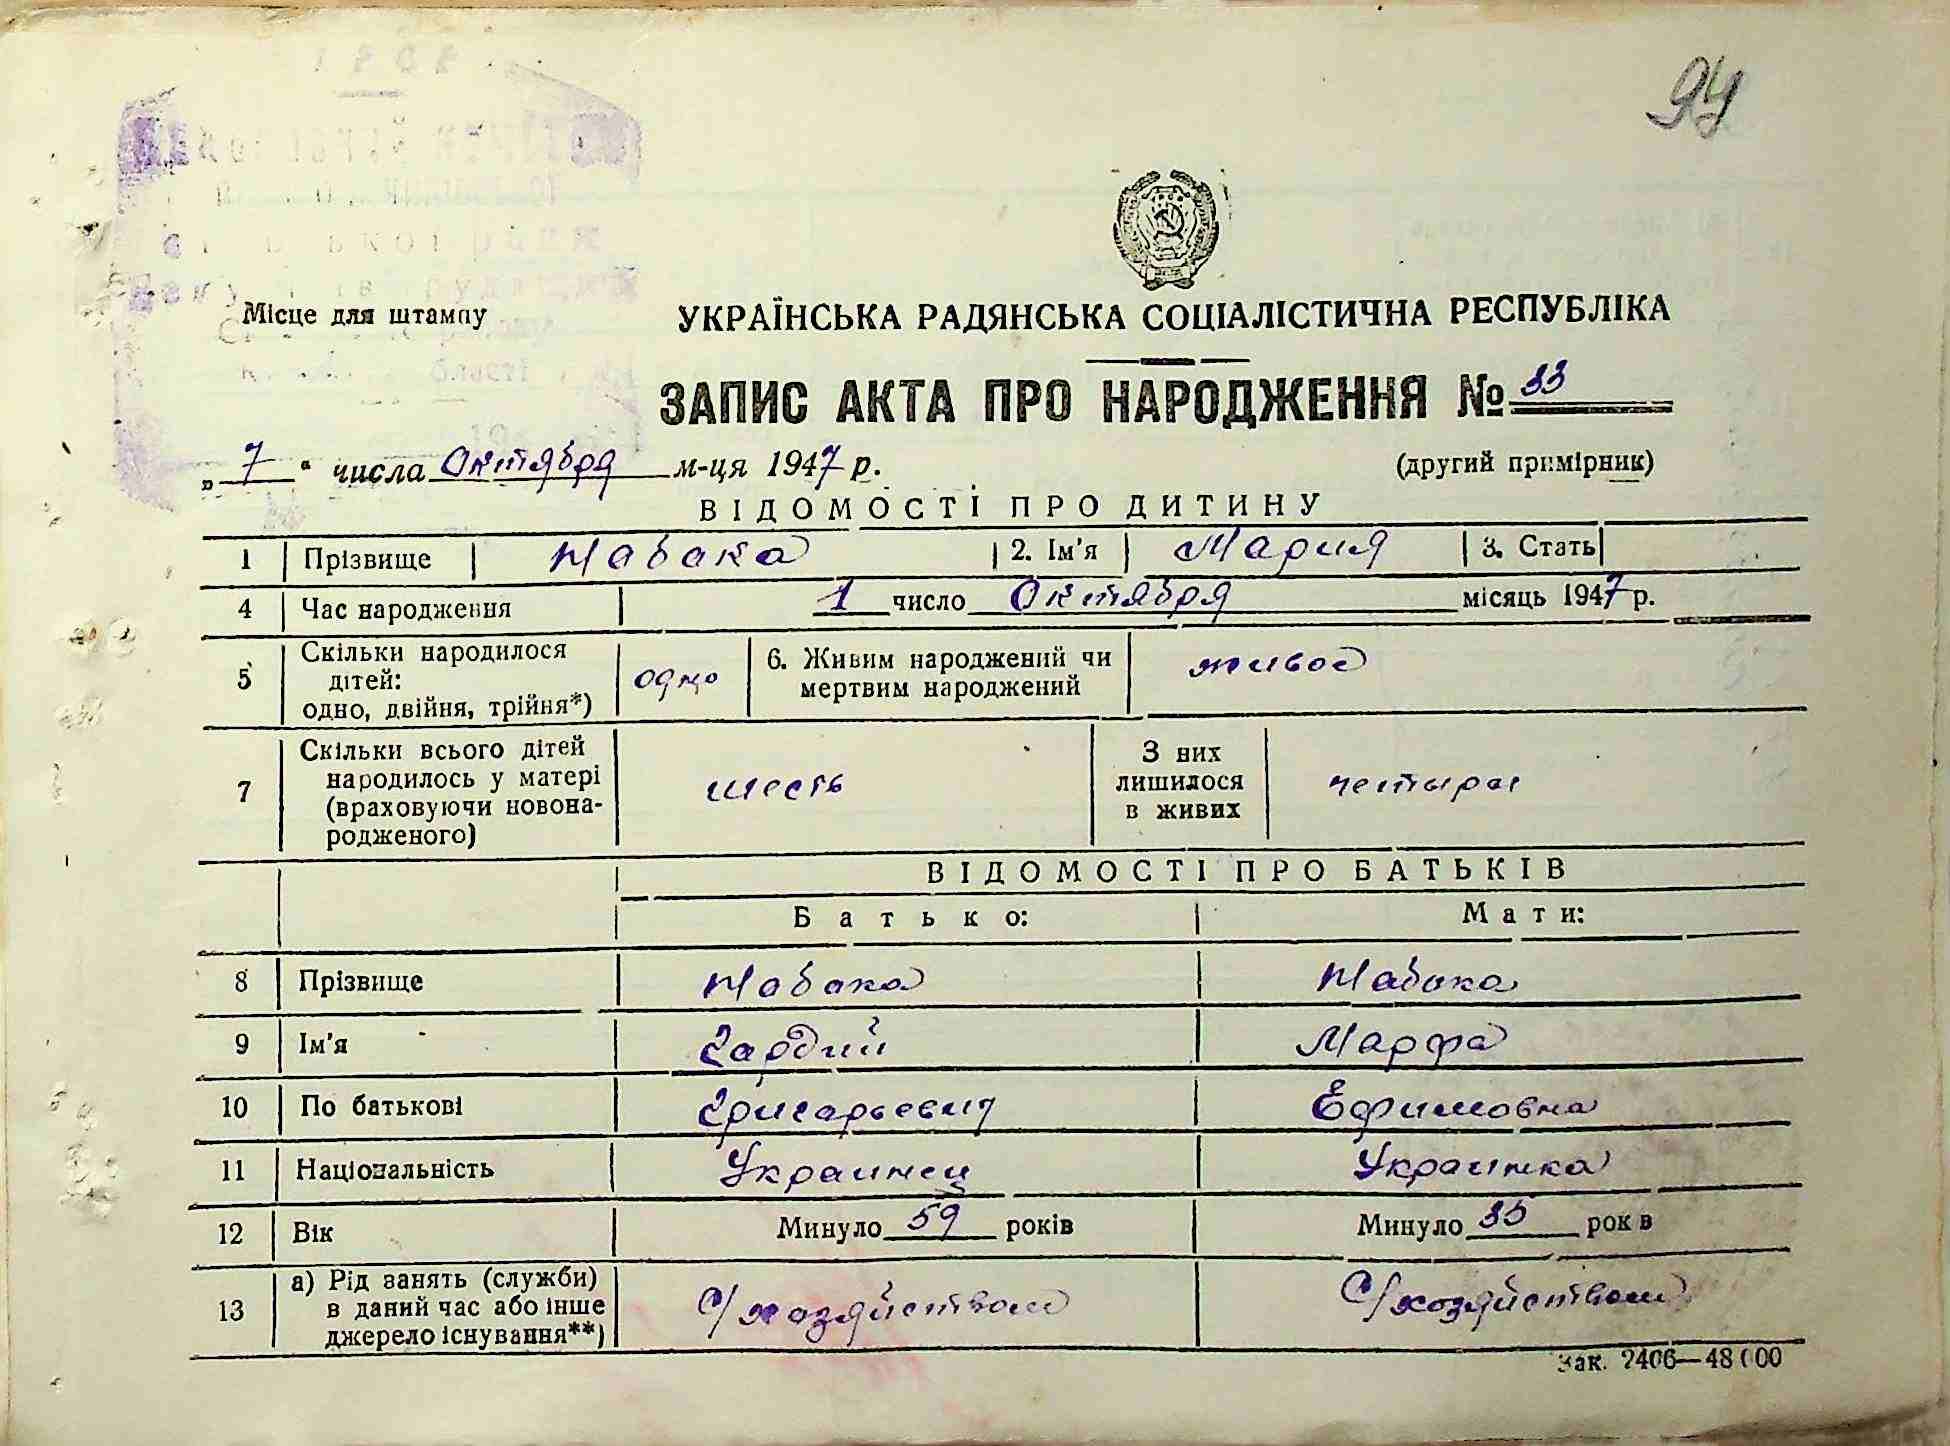 94
Місце для штампу
УКРАЇНСЬКА РАДЯНСЬКА СОЦІАЛІСТИЧНА РЕСПУБЛІКА
ЗАПИС АКТА ПРО НАРОДЖЕННЯ № 33
„ 7 “ числа Октября м-ця 1947 р.
(другий примірник)
ВІДОМОСТІ ПРО ДИТИНУ
1 Прізвище Чабака 2. Ім'я Мария 3. Стать
4 Час народження 1 число Октября місяць 1947 р.
5 Скільки народилося дітей: одно, двійня, трійня*) одно 6. Живим народжений чи мертвим народжений живое
7 Скільки всього дітей народилось у матері (враховуючи новонародженого) шесть З них лишилося в живих четыре
ВІДОМОСТІ ПРО БАТЬКІВ
Батько: Мати:
8 Прізвище Чабака Чабака
9 Ім'я Гардий Марфа
10 По батькові Григорьевич Ефимовна
11 Національність Украинец Украинка
12 Вік Минуло 59 років Минуло 35 років
13 а) Рід занять (служби) в даний час або інше джерело існування**) С/хозяйством С/хозяйством
Зак. 2406—48000